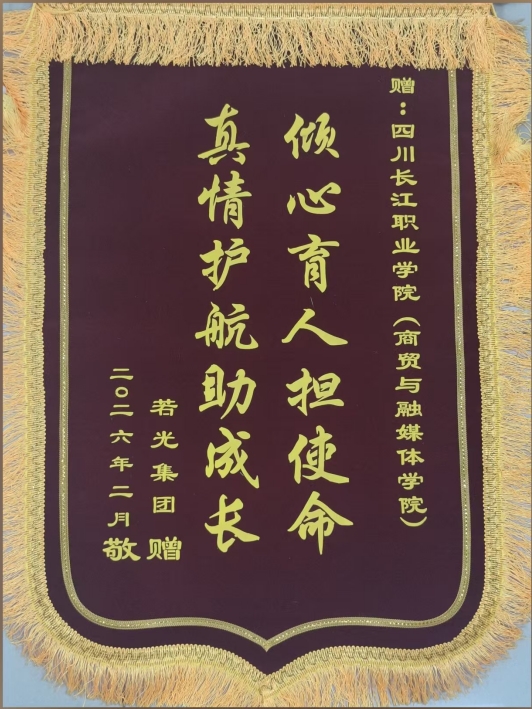 赠：四川长江职业学院（商贸与融媒体学院）
倾心育人担使命
真情护航助成长
若光集团 赠
二〇二六年二月 敬